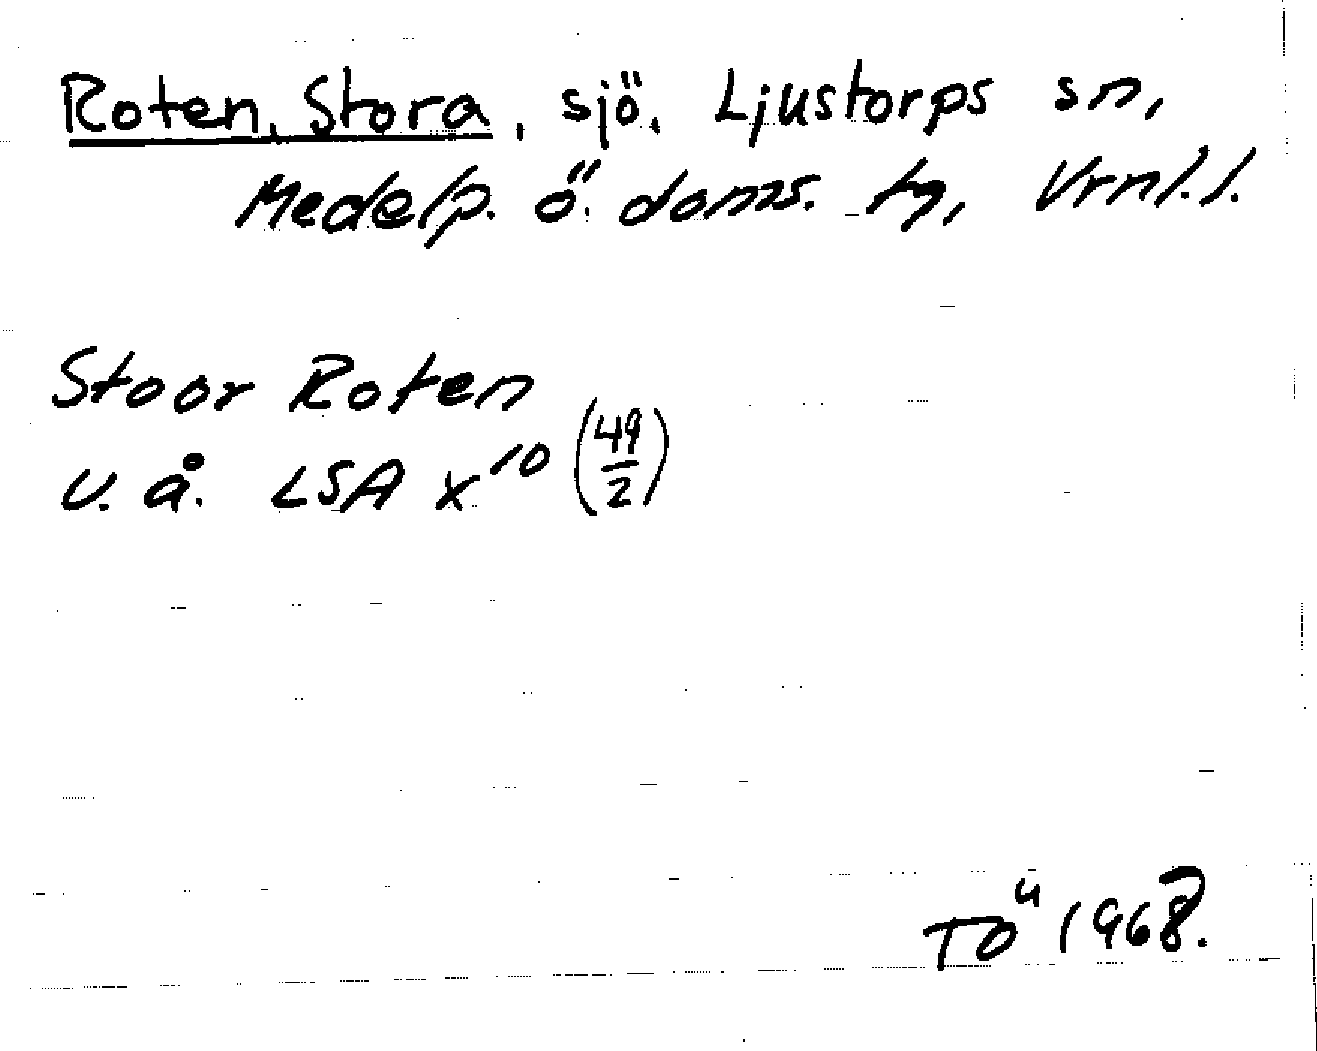 Roten, Stora, sjö. Ljustorps sn,
Medelp. ö. doms. tg, Vrnl.l.
Stoor Roten
U. å. LSA X 10 (49/2)
TÖ 1968.